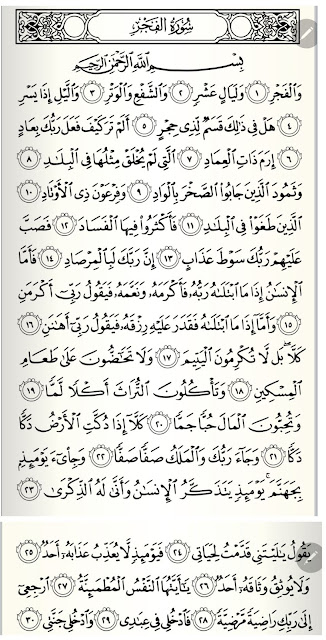 سُورَةُ الفَجْرِ
بِسْمِ اللَّهِ الرَّحْمَٰنِ الرَّحِيمِ
وَالْفَجْرِ ١ وَلَيَالٍ عَشْرٍ ٢ وَالشَّفْعِ وَالْوَتْرِ ٣ وَاللَّيْلِ إِذَا يَسْرِ
٤ هَلْ فِي ذَٰلِكَ قَسَمٌ لِّذِي حِجْرٍ ٥ أَلَمْ تَرَ كَيْفَ فَعَلَ رَبُّكَ بِعَادٍ
٦ إِرَمَ ذَاتِ الْعِمَادِ ٧ الَّتِي لَمْ يُخْلَقْ مِثْلُهَا فِي الْبِلَٰدِ ٨
وَثَمُودَ الَّذِينَ جَابُوا الصَّخْرَ بِالْوَادِ ٩ وَفِرْعَوْنَ ذِي الْأَوْتَادِ ١٠
الَّذِينَ طَغَوْا فِي الْبِلَٰدِ ١١ فَأَكْثَرُوا فِيهَا الْفَسَادَ ١٢ فَصَبَّ
عَلَيْهِمْ رَبُّكَ سَوْطَ عَذَابٍ ١٣ إِنَّ رَبَّكَ لَبِالْمِرْصَادِ ١٤ فَأَمَّا
الْإِنسَٰنُ إِذَا مَا ابْتَلَىٰهُ رَبُّهُ فَأَكْرَمَهُ وَنَعَّمَهُ فَيَقُولُ رَبِّي أَكْرَمَنِ
١٥ وَأَمَّا إِذَا مَا ابْتَلَىٰهُ فَقَدَرَ عَلَيْهِ رِزْقَهُ فَيَقُولُ رَبِّي أَهَٰنَنِ ١٦
كَلَّا بَل لَّا تُكْرِمُونَ الْيَتِيمَ ١٧ وَلَا تَحَٰضُّونَ عَلَىٰ طَعَامِ
الْمِسْكِينِ ١٨ وَتَأْكُلُونَ التُّرَاثَ أَكْلًا لَّمًّا ١٩
وَتُحِبُّونَ الْمَالَ حُبًّا جَمًّا ٢٠ كَلَّا إِذَا دُكَّتِ الْأَرْضُ دَكًّا
دَكًّا ٢١ وَجَاءَ رَبُّكَ وَالْمَلَكُ صَفًّا صَفًّا ٢٢ وَجِايءَ يَوْمَئِذٍ
بِجَهَنَّمَ يَوْمَئِذٍ يَتَذَكَّرُ الْإِنسَٰنُ وَأَنَّىٰ لَهُ الذِّكْرَىٰ ٢٣
يَقُولُ يَٰلَيْتَنِي قَدَّمْتُ لِحَيَاتِي ٢٤ فَيَوْمَئِذٍ لَّا يُعَذِّبُ عَذَابَهُ أَحَدٌ ٢٥
وَلَا يُوثِقُ وَثَاقَهُ أَحَدٌ ٢٦ يَٰأَيَّتُهَا النَّفْسُ الْمُطْمَئِنَّةُ ٢٧ ارْجِعِي
إِلَىٰ رَبِّكِ رَاضِيَةً مَّرْضِيَّةً ٢٨ فَادْخُلِي فِي عِبَٰدِي ٢٩ وَادْخُلِي جَنَّتِي ٣٠